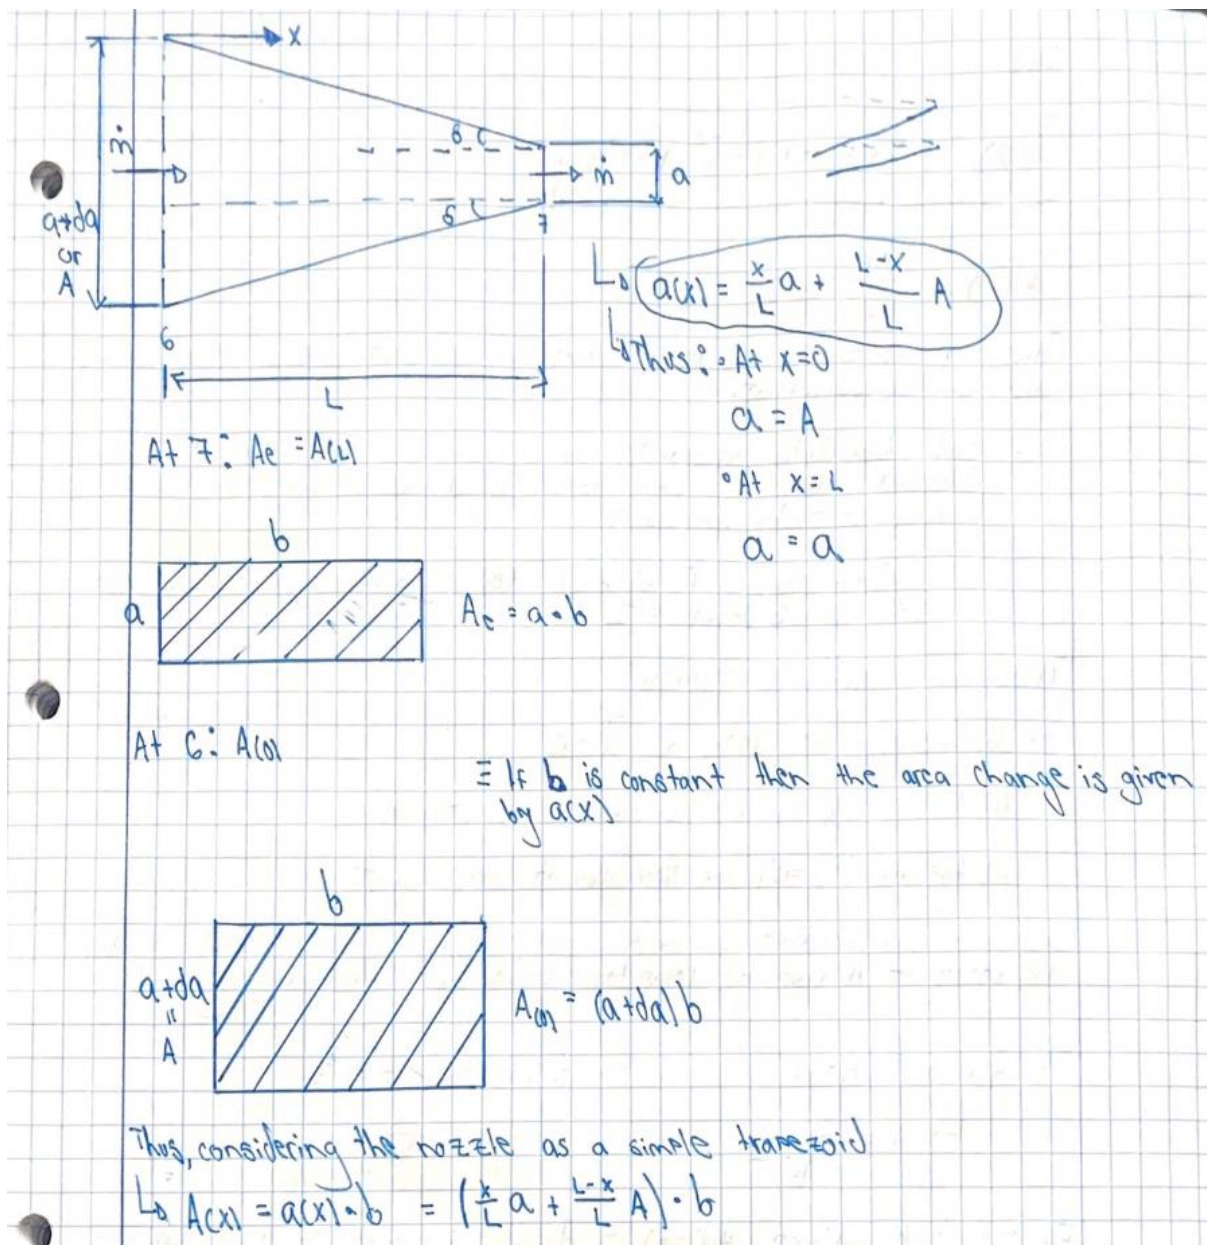 x
ṁ
a+da
or
A
6
L
δ
δ
7
ṁ
a
a(x) = x/L a + L-x/L A
Thus: • At x=0
a = A
• At x=L
a = a
At 7: Ae = A(L)
b
a
Ae = a • b
At 6: A(0)
≡ If b is constant then the area change is given
by a(x)
b
a+da
"
A
A(0) = (a+da)b
Thus, considering the nozzle as a simple trapezoid
↳ A(x) = a(x) • b = (x/L a + L-x/L A) • b